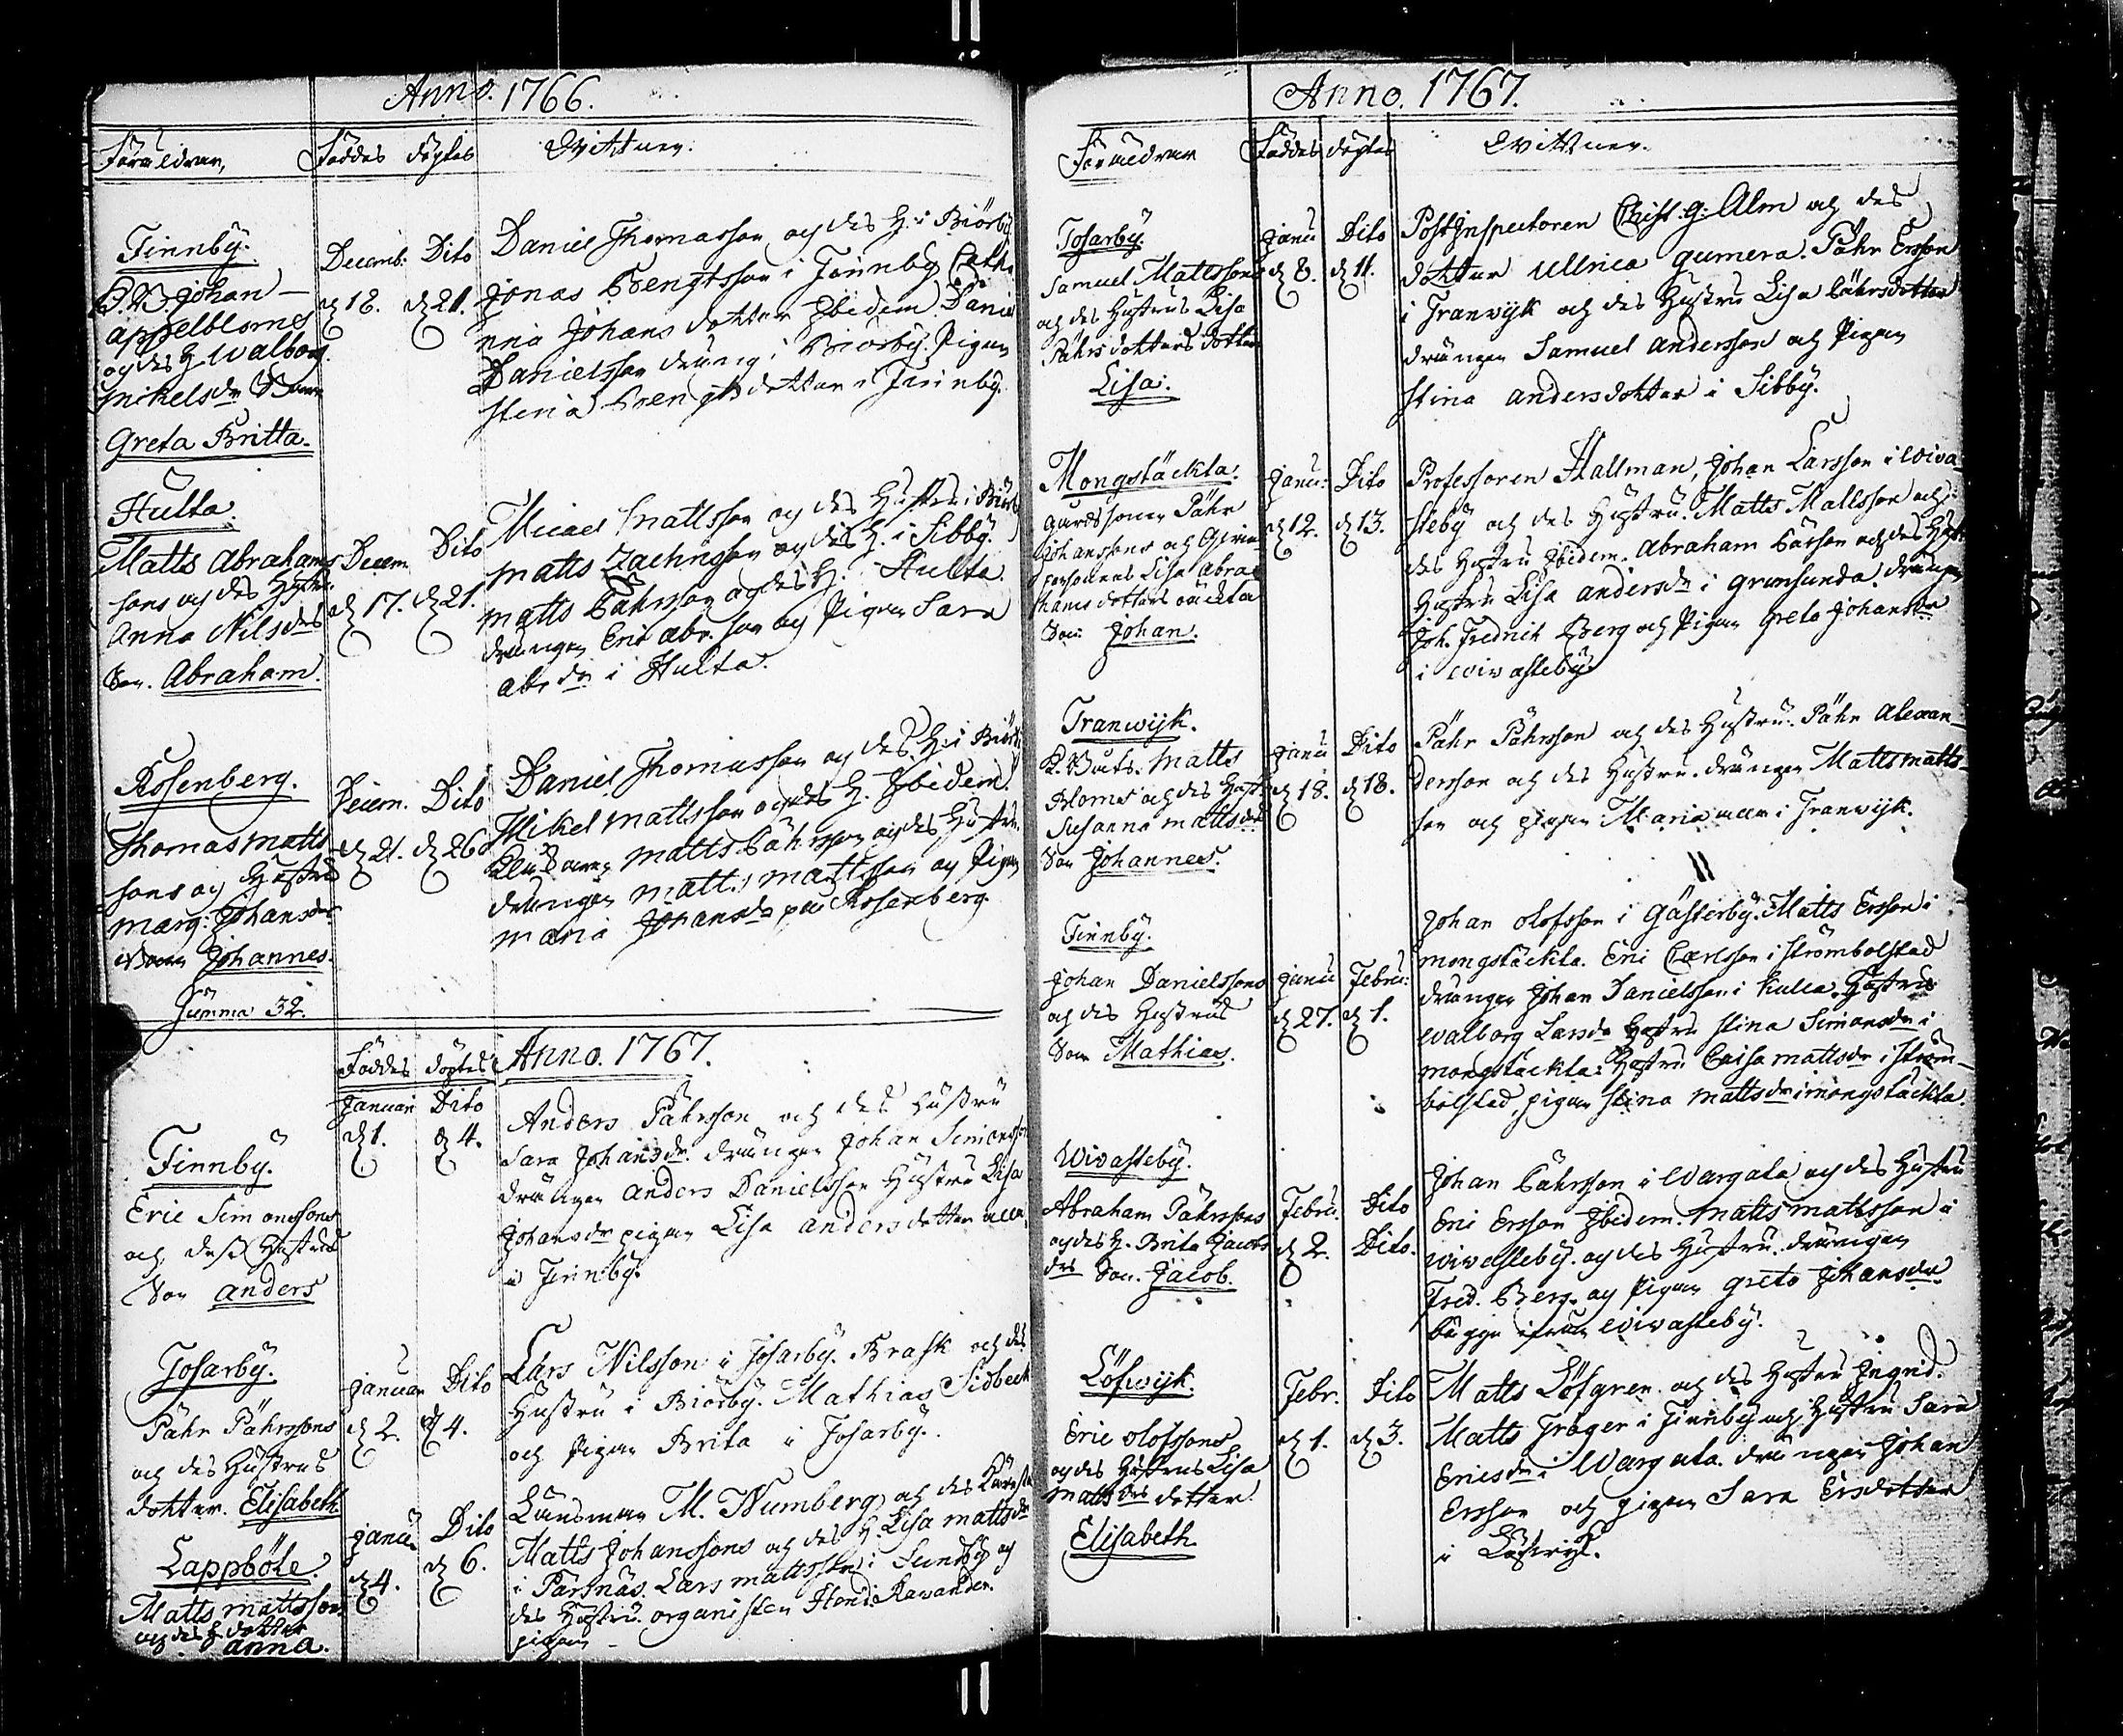 Anno. 1766.
Föräldrar, Föddes döptes Wittnen.
Finnby.
B. B. Johan
Appelbloms
og des H. Walborg
Mikels dr Barn
Greta Britta.
Decemb: Dito
d 18. d 21.
Daniel Thomasson og des H. i Biörby
Jonas Bengtsson i Finnby Catha
rina Johans dotter Ibidem. Daniel
Danielsson dräng i Biörby. Pigan
Stina Bengts dotter i Finnby.
Hulta.
Matts Abrahams
sons og des Hustrus
Anna Nils drs
Son. Abraham.
Decem. Dito
d 17. d 21.
Micael Mattsson og des Hustru i Biörby
Matts Zachrisson og des H. i Sibby.
Matts Pährsson og des H. i Hulta.
drängen Eric Abr. son og Pigan Sara
Abr. dr i Hulta.
Rosenberg.
Thomas Matts
sons og Hustrus
Marg: Johans drs
Barn Johannes.
Summa 32.
Decem. Dito
d 21. d 26
Daniel Thomasson og des H. i Biörby
Mikel Mattsson og des H. Ibidem.
Matts Pährsson og des Hustru.
drängen Matts Mattsson og Pigan
Maria Johans dr på Rosenberg.
Föddes döptes Anno. 1767.
Januari Dito
d 1. d 4.
Finnby.
Eric Simonssons
och dess Hustrus
Son Anders
Anders Pährsson och des Hustru
Sara Johans dr. drängen Johan Simonsson
drängen Anders Danielsson Hustru Lisa
Johans dr pigan Lisa Anders dotter alla
i Finnby.
Tosarby.
Pähr Pährssons
och des Hustrus
dotter. Elisabeth
Januar Dito
d 2. d 4.
Lars Nilsson i Tosarby. Brask och des
Hustru i Biörby. Mathias Sidbeck
och Pigan Brita i Tosarby.
Lappböle.
Matts Mattssons
och des H dotter
Anna.
Janua Dito
d 4. d 6.
Länsman M. Numberg och des Käresta
Matts Johanssons och des H. Lisa Matts dr
i Pärsnäs. Lars Mattsson i Sundby og
des Hustru. organisten Hend: Ravander.
pigan
Anno. 1767.
Föräldrar Föddes döptes Wittnen.
Tosarby.
Samuel Mattssons
och des Hustrus Lisa
Pährs dotters dotter
Lisa.
Janu Dito
d 8. d 11.
Post Inspectoren Christ: G: Alm och des
dotter Ullrica Gumera. Pähr Ersson
i Tranwijk och des Hustru Lisa Pährsdotter
drängen Samuel Andersson och Pigan
Stina Andersdotter i Sibby.
Mongstäckta.
Gårdssonen Pähr
Johanssons och
personens Lisa Abra
hams dotters oäckta
Son Johan.
Janu: Dito
d 12. d 13.
Professoren Hallman, Johan Larsson i Wiwa
steby och des Hustru. Matts Mattsson och
des Hustru Ibidem. Abraham Pärson och des Hust
Hustru Lisa Anders dr i Grunsunda. drängen
Joh. Fredrich Berg och Pigan Greta Johans dr
i Wiwasteby.
Tranwijk.
B. Båts. Matts
Bloms och des Hust
Susanna Matts drs
Son Johannes.
Janu Dito
d 18. d 18.
Pähr Pährsson och des Hustru. Pähr Alexan
dersson och des Hustru. drängen Matts Matts
son och pigan Maria alla i Tranwijk.
Finnby.
Johan Danielssons
och des Hustrus
Son Mathias.
Janu Febru:
d 27. d 1.
Johan Olofsson i Gästerby. Matts Ersson i
Mongstäckta. Eric Carlsson i Strömbolstad
drängen Johan Danielsson i Kulla. Hustru
Walborg Lars dr Hustru Stina Simons dr i
Mongstäckta. Hustru Caisa Matts dr i Ström
bolstad, pigan Stina Matts dr i Mongstäckta.
Wiwasteby.
Abraham Pährssons
og des H. Brita Jacobs
drs Son. Jacob.
Febru. Dito
d 2. Dito.
Johan Pährsson i Wargata og des Hustru
Eric Ersson Ibidem. Matts Mattsson i
Wiwasteby. og des Hustru. drängen
Fred. Berg. og Pigan Greta Johans dr.
bägge ifrån Wiwasteby.
Löfwijk.
Eric Olofssons
og des Hustrus Lisa
Matts drs dotter.
Elisabeth
Febr. Dito
d 1. d 3.
Matts Löfgren och des Hustru Ingrid.
Matts Tråger i Finnby och Hustru Sara
Erics dr i Wargata. drängen Johan
Ersson och pigan Sara Ersdotter
i Löfwijk.